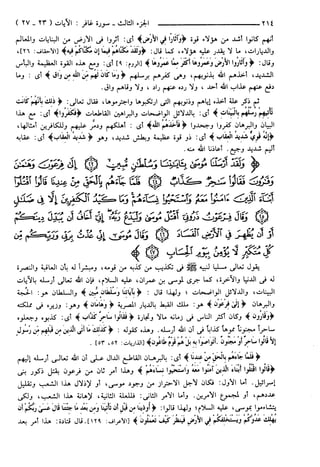 ٢١٤
الجزء الثالث - سورة غافر : الآيات ( ٢٣ - ٢٧ )
أنهم كانوا أشد من هؤلاء قوة ﴿وَآثَارًا فِي الْأَرْضِ﴾ أي: أثروا في الأرض من البنايات والمعالم
والديارات، ما لا يقدر عليه هؤلاء، كما قال: ﴿وَلَقَدْ مَكَّنَّاهُمْ فِيمَا إِنْ مَكَّنَّاكُمْ فِيهِ﴾ [الأحقاف: ٢٦]،
وقال: ﴿وَأَثَارُوا الْأَرْضَ وَعَمَرُوهَا أَكْثَرَ مِمَّا عَمَرُوهَا﴾ [الروم: ٩] أي: ومع هذه القوة العظيمة والبأس
الشديد، أخذهم الله بذنوبهم، وهي كفرهم برسلهم ﴿وَمَا كَانَ لَهُمْ مِنَ اللَّهِ مِنْ وَاقٍ﴾ أي : وما
دفع عنهم عذاب الله أحد ، ولا رده عنهم راد ، ولا وقاهم واق.
ثم ذكر علة أخذه إياهم وذنوبهم التي ارتكبوها واجترموها، فقال تعالى: ﴿ذَلِكَ بِأَنَّهُمْ كَانَتْ
تَأْتِيهِمْ رُسُلُهُمْ بِالْبَيِّنَاتِ﴾ أي: بالدلائل الواضحات والبراهين القاطعات ﴿فَكَفَرُوا﴾ أي: مع هذا
البيان والبرهان كفروا وجحدوا ﴿فَأَخَذَهُمُ اللَّهُ﴾ أي : أهلكهم ودمّر عليهم وللكافرين أمثالها،
﴿إِنَّهُ قَوِيٌّ شَدِيدُ الْعِقَابِ﴾ أي: ذو قوة عظيمة وبطش شديد، وهو ﴿شَدِيدُ الْعِقَابِ﴾ أي: عقابه
أليم شديد وجيع. أعاذنا الله منه.
وَلَقَدْ أَرْسَلْنَا مُوسَى بِآيَاتِنَا وَسُلْطَانٍ مُبِينٍ ﴿٢٣﴾ إِلَى فِرْعَوْنَ وَهَامَانَ وَقَارُونَ
فَقَالُوا سَاحِرٌ كَذَّابٌ ﴿٢٤﴾ فَلَمَّا جَاءَهُمْ بِالْحَقِّ مِنْ عِنْدِنَا قَالُوا اقْتُلُوا
أَبْنَاءَ الَّذِينَ آمَنُوا مَعَهُ وَاسْتَحْيُوا نِسَاءَهُمْ وَمَا كَيْدُ الْكَافِرِينَ إِلَّا فِي ضَلَالٍ
﴿٢٥﴾ وَقَالَ فِرْعَوْنُ ذَرُونِي أَقْتُلْ مُوسَى وَلْيَدْعُ رَبَّهُ إِنِّي أَخَافُ أَنْ يُبَدِّلَ دِينَكُمْ
أَوْ أَنْ يُظْهِرَ فِي الْأَرْضِ الْفَسَادَ ﴿٢٦﴾ وَقَالَ مُوسَى إِنِّي عُذْتُ بِرَبِّي وَرَبِّكُمْ مِنْ
كُلِّ مُتَكَبِّرٍ لَا يُؤْمِنُ بِيَوْمِ الْحِسَابِ ﴿٢٧﴾
يقول تعالى مسليا لنبيه ﷺ في تكذيب من كذبه من قومه، ومبشراً له بأن العاقبة والنصرة
له في الدنيا والآخرة، كما جرى لموسى بن عمران، عليه السلام، فإن الله تعالى أرسله بالآيات
البينات، والدلائل الواضحات ؛ ولهذا قال : ﴿بِآيَاتِنَا وَسُلْطَانٍ مُبِينٍ﴾ والسلطان هو: الحجة
والبرهان ﴿إِلَى فِرْعَوْنَ﴾ هو: ملك القبط بالديار المصرية ﴿وَهَامَانَ﴾ وهو: وزيره في مملكته
﴿وَقَارُونَ﴾ وكان أكثر الناس في زمانه مالا وتجارة ﴿فَقَالُوا سَاحِرٌ كَذَّابٌ﴾ أي: كذبوه وجعلوه
ساحراً مجنوناً مموهاً كذاباً في أن الله أرسله. وهذه كقوله : ﴿كَذَلِكَ مَا أَتَى الَّذِينَ مِنْ قَبْلِهِمْ مِنْ رَسُولٍ
إِلَّا قَالُوا سَاحِرٌ أَوْ مَجْنُونٌ . أَتَوَاصَوْا بِهِ بَلْ هُمْ قَوْمٌ طَاغُونَ﴾ [الذاريات: ٥٢، ٥٣] .
﴿فَلَمَّا جَاءَهُمْ بِالْحَقِّ مِنْ عِنْدِنَا﴾ أي: بالبرهان القاطع الدال على أن الله تعالى أرسله إليهم
﴿قَالُوا اقْتُلُوا أَبْنَاءَ الَّذِينَ آمَنُوا مَعَهُ وَاسْتَحْيُوا نِسَاءَهُمْ﴾ وهذا أمر ثان من فرعون بقتل ذكور بنى
إسرائيل. أما الأول: فكان لأجل الاحتراز من وجود موسى، أو لإذلال هذا الشعب وتقليل
عددهم، أو لمجموع الأمرين. وأما الأمر الثاني: فللعلة الثانية، ولإهانة هذا الشعب، ولكى
يتشاءموا بموسى، عليه السلام؛ ولهذا قالوا: ﴿أُوذِينَا مِنْ قَبْلِ أَنْ تَأْتِيَنَا وَمِنْ بَعْدِ مَا جِئْتَنَا قَالَ عَسَى رَبُّكُمْ أَنْ
يُهْلِكَ عَدُوَّكُمْ وَيَسْتَخْلِفَكُمْ فِي الْأَرْضِ فَيَنْظُرَ كَيْفَ تَعْمَلُونَ﴾ [الأعراف: ١٢٩]. قال قتادة: هذا أمر بعد